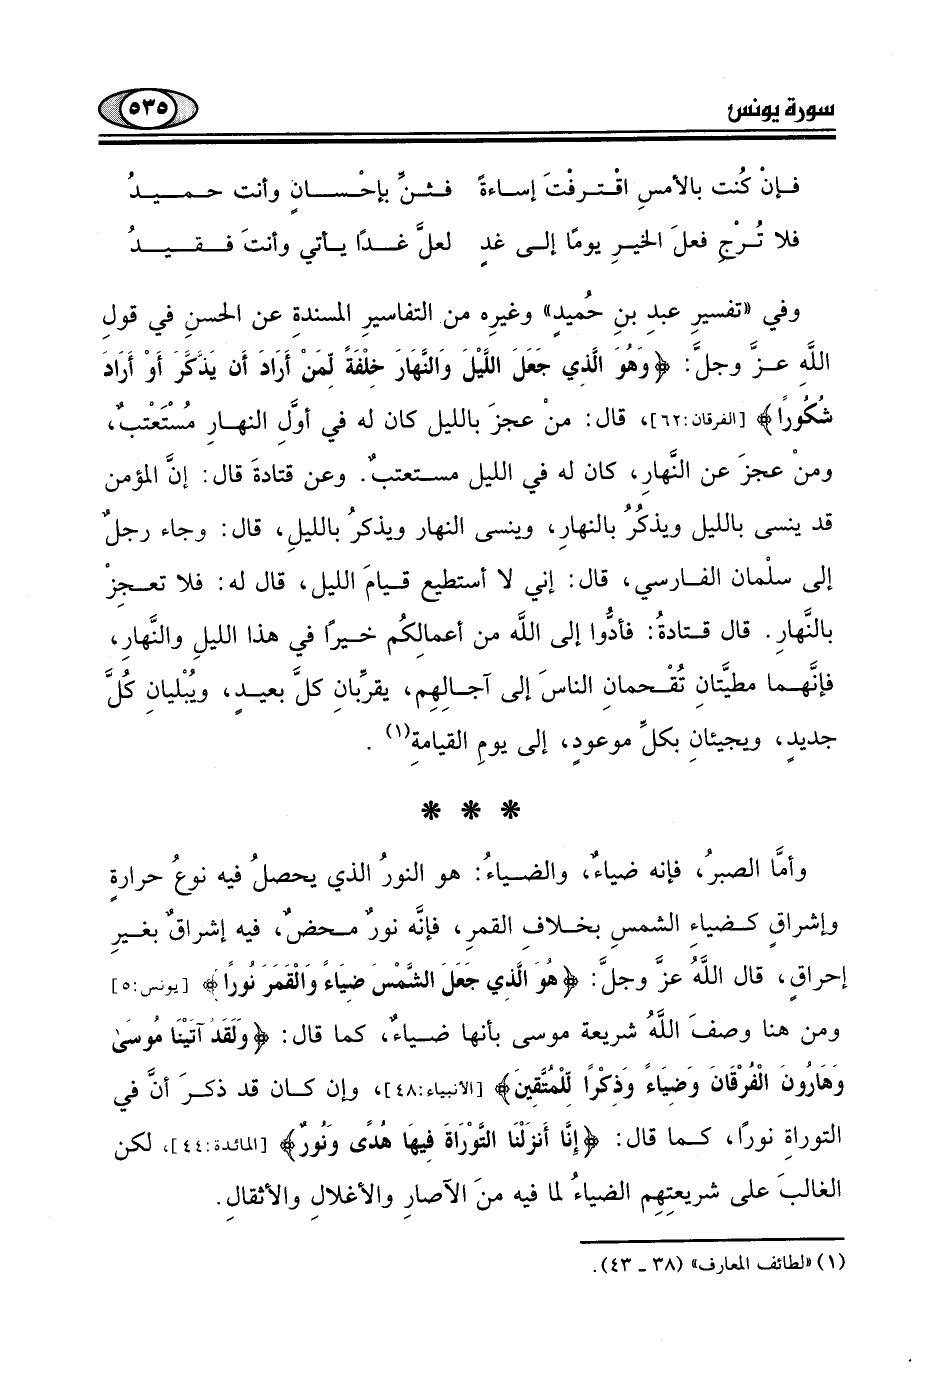 سورة يونس ٥٣٥
فإنْ كُنت بالأمسِ اقْترفْتَ إساءةً فـثنِّ بإحْسـانٍ وأنت حـمـيـدُ
فلا تُرْجِ فعلَ الخيرِ يومًا إلى غدٍ لعلَّ غـدًا يـأتي وأنتَ فـقـيـدُ
وفي «تفسيرِ عبدِ بنِ حُميدٍ» وغيرِه من التفاسيرِ المسندة عن الحسنِ في قولِ
اللَّهِ عـزَّ وجلَّ: ﴿وَهُوَ الَّذِي جَعَلَ اللَّيْلَ وَالنَّهَارَ خِلْفَةً لِّمَنْ أَرَادَ أَن يَذَّكَّرَ أَوْ أَرَادَ
شُكُورًا﴾ [الفرقان:٦٢]، قال: منْ عجزَ بالليلِ كان له في أوَّلِ النهـارِ مُسْتَعْتبٌ،
ومنْ عجزَ عن النَّهارِ، كان له في الليلِ مستعتبٌ. وعن قتادةَ قال: إنَّ المؤمن
قد ينسى بالليلِ ويذكُرُ بالنهارِ، وينسى النهار ويذكرُ بالليلِ، قال: وجاء رجلٌ
إلى سلْمان الفـارسي، قال: إني لا أستطيع قـيامَ الليل، قال له: فلا تعـجزْ
بالنَّهارِ. قال قـتادةُ: فأدُّوا إلى اللَّه من أعمالِكم خيرًا في هذا الليلِ والنَّهارِ،
فإنَّهـما مطيَّتانِ تُقْـحمان الناسَ إلى آجـالِهِم، يقرِّبانِ كلَّ بعيـدٍ، ويُبْليانِ كُلَّ
جديدٍ، ويجيئانِ بكلِّ موعودٍ، إلى يومِ القيامةِ(١).
* * *
وأمَّا الصبرُ، فإنه ضياءٌ، والضـياءُ: هو النورُ الذي يحصلُ فيه نوعُ حرارةٍ
وإشراقٍ كـضياءِ الشمسِ بخـلافِ القمرِ، فإنَّه نورٌ مـحضٌ، فيه إشراقٌ بغيرِ
إحراقٍ، قال اللَّهُ عزَّ وجلَّ: ﴿هُوَ الَّذِي جَعَلَ الشَّمْسَ ضِيَاءً وَالْقَمَرَ نُورًا﴾ [يونس:٥]
ومن هنا وصفَ اللَّهُ شريعة موسى بأنها ضـياءٌ، كما قال: ﴿وَلَقَدْ آتَيْنَا مُوسَىٰ
وَهَارُونَ الْفُرْقَانَ وَضِيَاءً وَذِكْرًا لِّلْمُتَّقِينَ﴾ [الأنبياء:٤٨]، وإن كـان قد ذكـرَ أنَّ في
التوراةِ نورًا، كـما قال: ﴿إِنَّا أَنزَلْنَا التَّوْرَاةَ فِيهَا هُدًى وَنُورٌ﴾ [المائدة:٤٤]، لكن
الغالبَ على شريعتِهِم الضياءُ لما فيه منَ الآصارِ والأغلالِ والأثقالِ.
(١) «لطائف المعارف» (٣٨ - ٤٣).